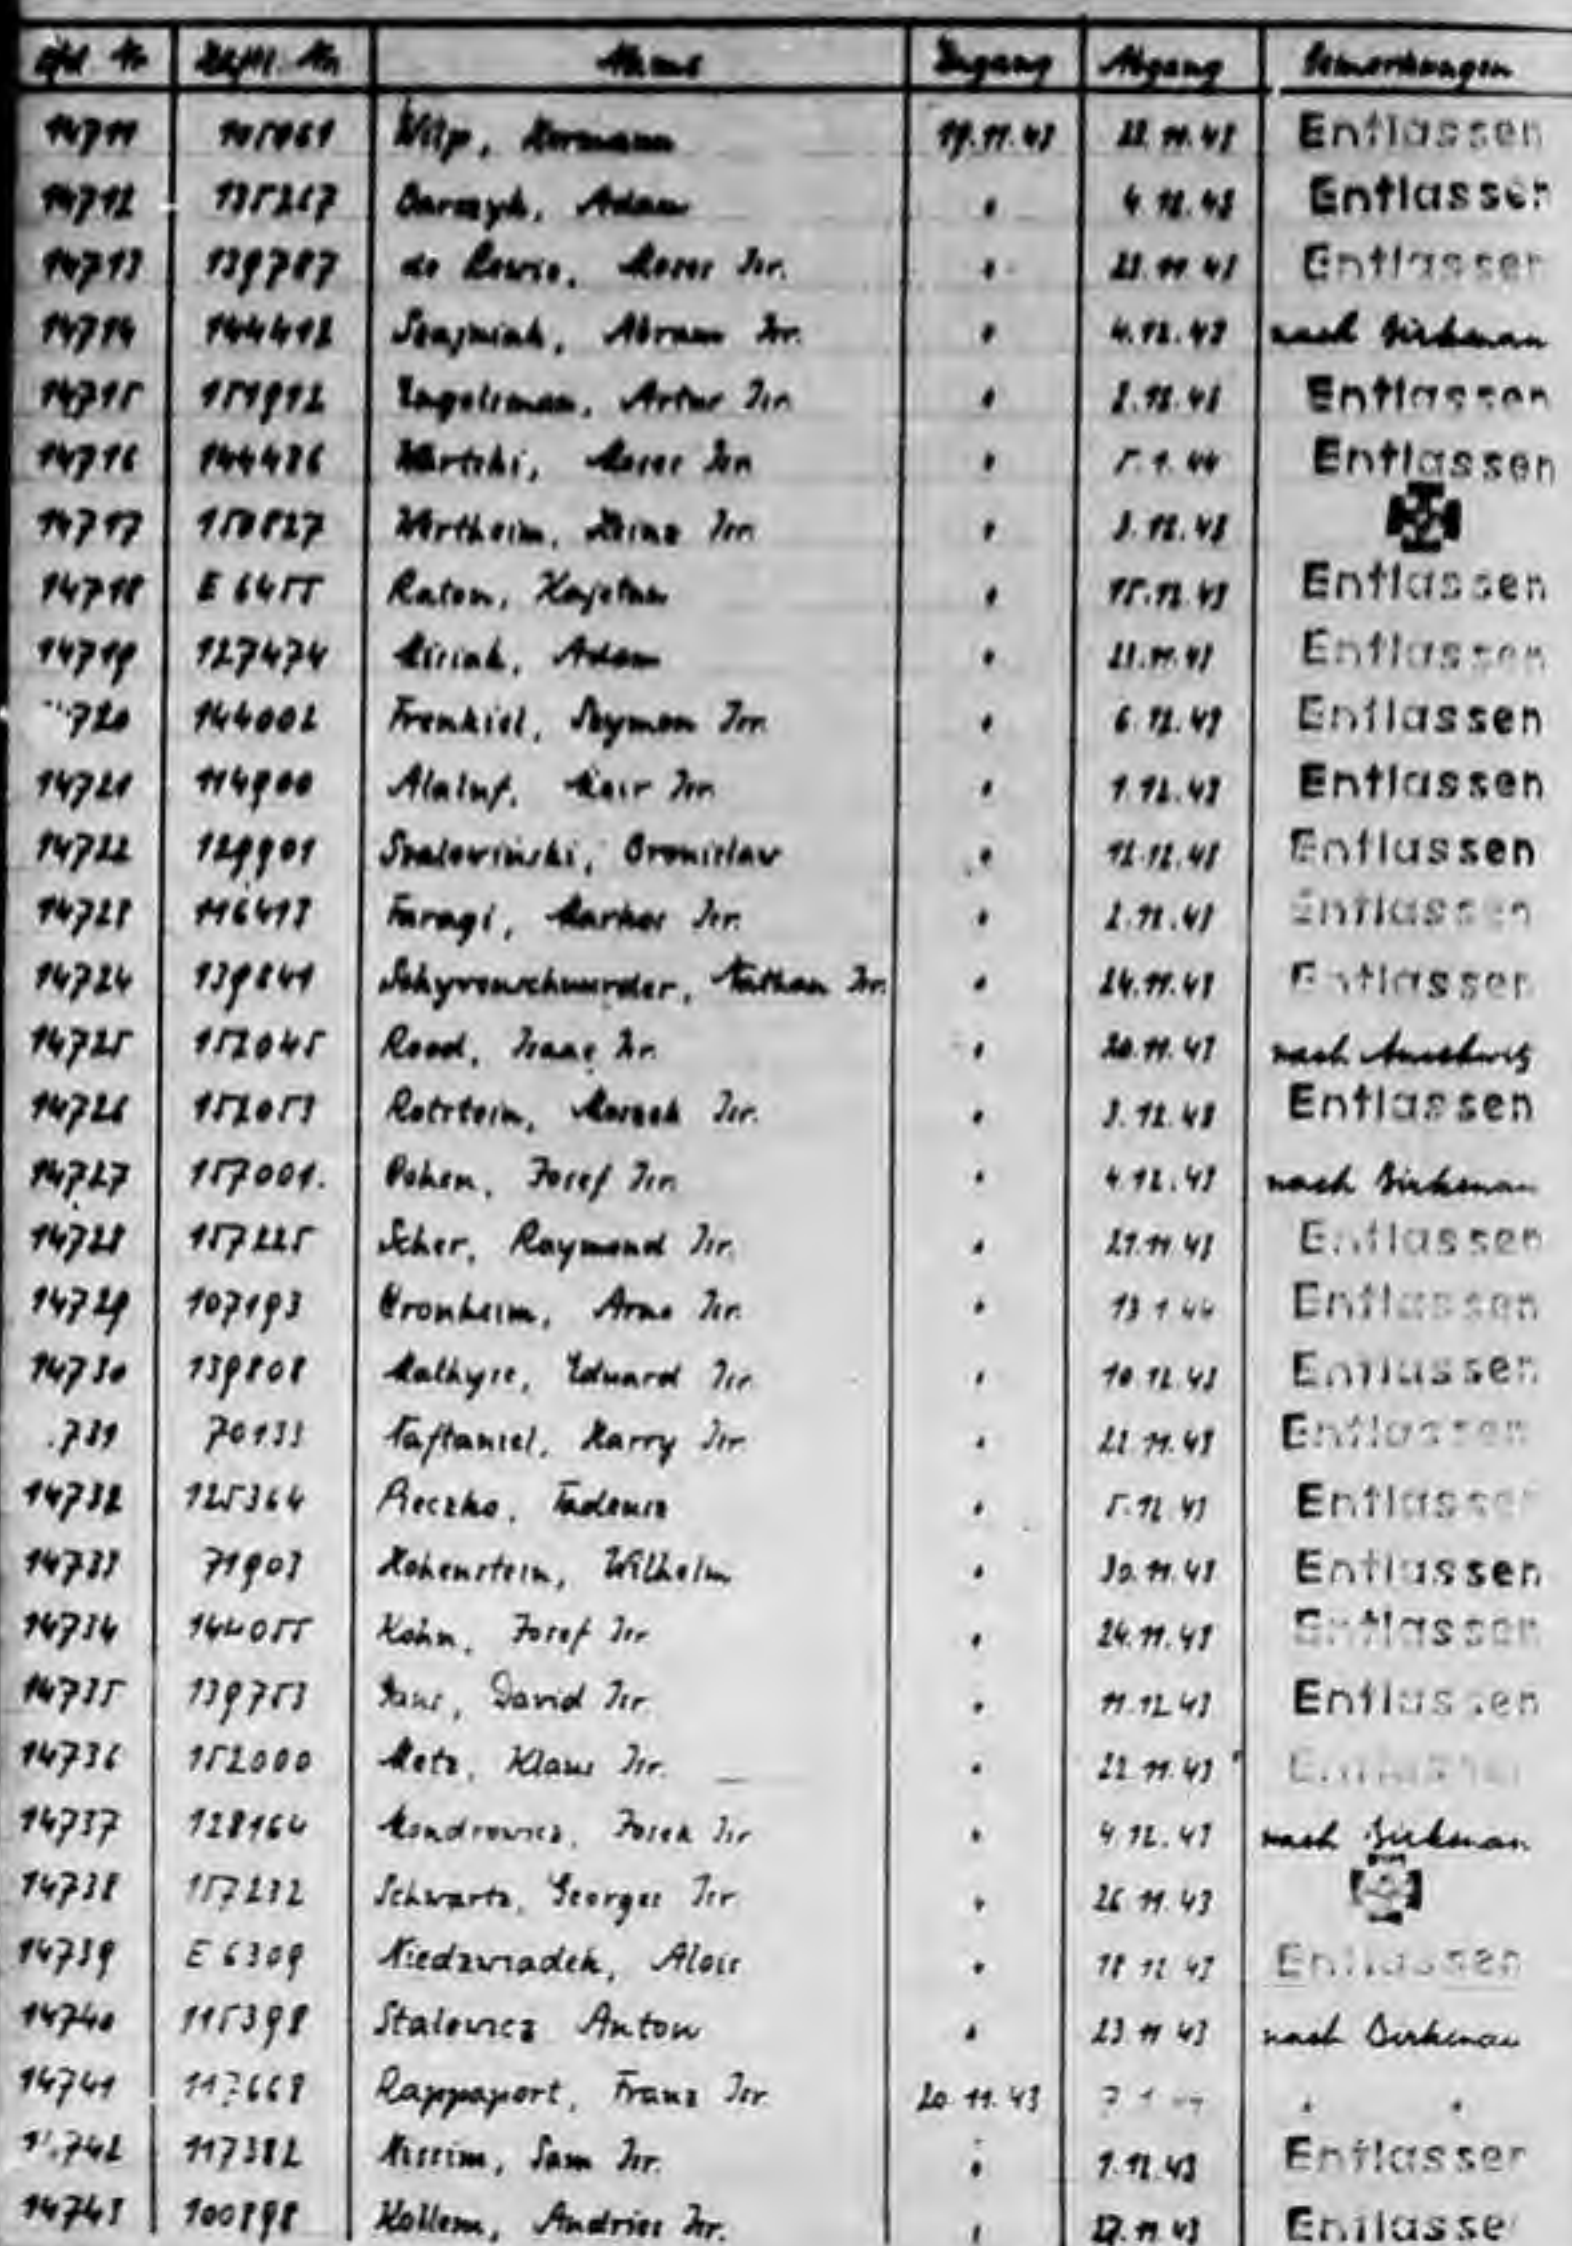 Lfd. Nr. Häftl. Nr. Name Zugang Abgang Bemerkungen
14711 105061 Wilp, Hermann 19.11.43 22.11.43 Entlassen
14712 135267 Adam " 4.12.43 Entlassen
14713 139787 de Moses Isr. " 23.11.43 Entlassen
14714 144412 Abram Isr. " 4.12.43 nach Birkenau
14715 151912 Engelsman, Artur Isr. " 2.12.43 Entlassen
14716 144486 Moses Isr. " 5.1.44 Entlassen
14717 150827 Wertheim, Heinz Isr. " 3.12.43
14718 E 6455 Raton, Kajetan " 15.12.43 Entlassen
14719 127474 Misiak, Adam " 23.11.43 Entlassen
720 144002 Frenkiel, Szymon Isr. " 6.12.43 Entlassen
14721 114900 Alaluf, Mair Isr. " 1.12.43 Entlassen
14722 129901 Bronislaw " 12.12.43 Entlassen
14723 116413 Faragi, Markos Isr. " 2.12.43 Entlassen
14724 139841 Nathan Isr. " 24.11.43 Entlassen
14725 152045 Rood, Isaac Isr. " 20.11.43 nach Auschwitz
14726 152053 Rotstein, Isr. " 3.12.43 Entlassen
14727 157001. Josef Isr. " 4.12.43 nach Birkenau
14728 157225 Scher, Raymond Isr. " 29.11.43 Entlassen
14729 107193 Cronheim, Arno Isr. " 13.1.44 Entlassen
14730 139808 Mathyse, Eduard Isr. " 10.12.43 Entlassen
.731 70133 Naftaniel, Harry Isr. " 22.11.43 Entlassen
14732 125364 Pieczko, Tadeusz " 5.12.43 Entlassen
14733 71903 Hohenstein, Wilhelm " 30.11.43 Entlassen
14734 144055 Kohn, Josef Isr. " 24.11.43 Entlassen
14735 139753 Gans, David Isr. " 11.12.43 Entlassen
14736 152000 Metz, Klaus Isr. " 22.11.43 Entlassen
14737 128164 Mondrowicz, Josek Isr. " 4.12.43 nach Birkenau
14738 157232 Schwartz, Georges Isr. " 26.11.43
14739 E 6309 Niedzwiadek, Alois " 18.12.43 Entlassen
14740 115398 Stalewicz Anton " 23.11.43 nach Birkenau
14741 117668 Rappaport, Franz Isr. 20.11.43 " "
14742 117382 Nissim, Sam Isr. " 1.12.43 Entlassen
14743 100898 Kollem, Andries Isr. " 27.11.43 Entlasse